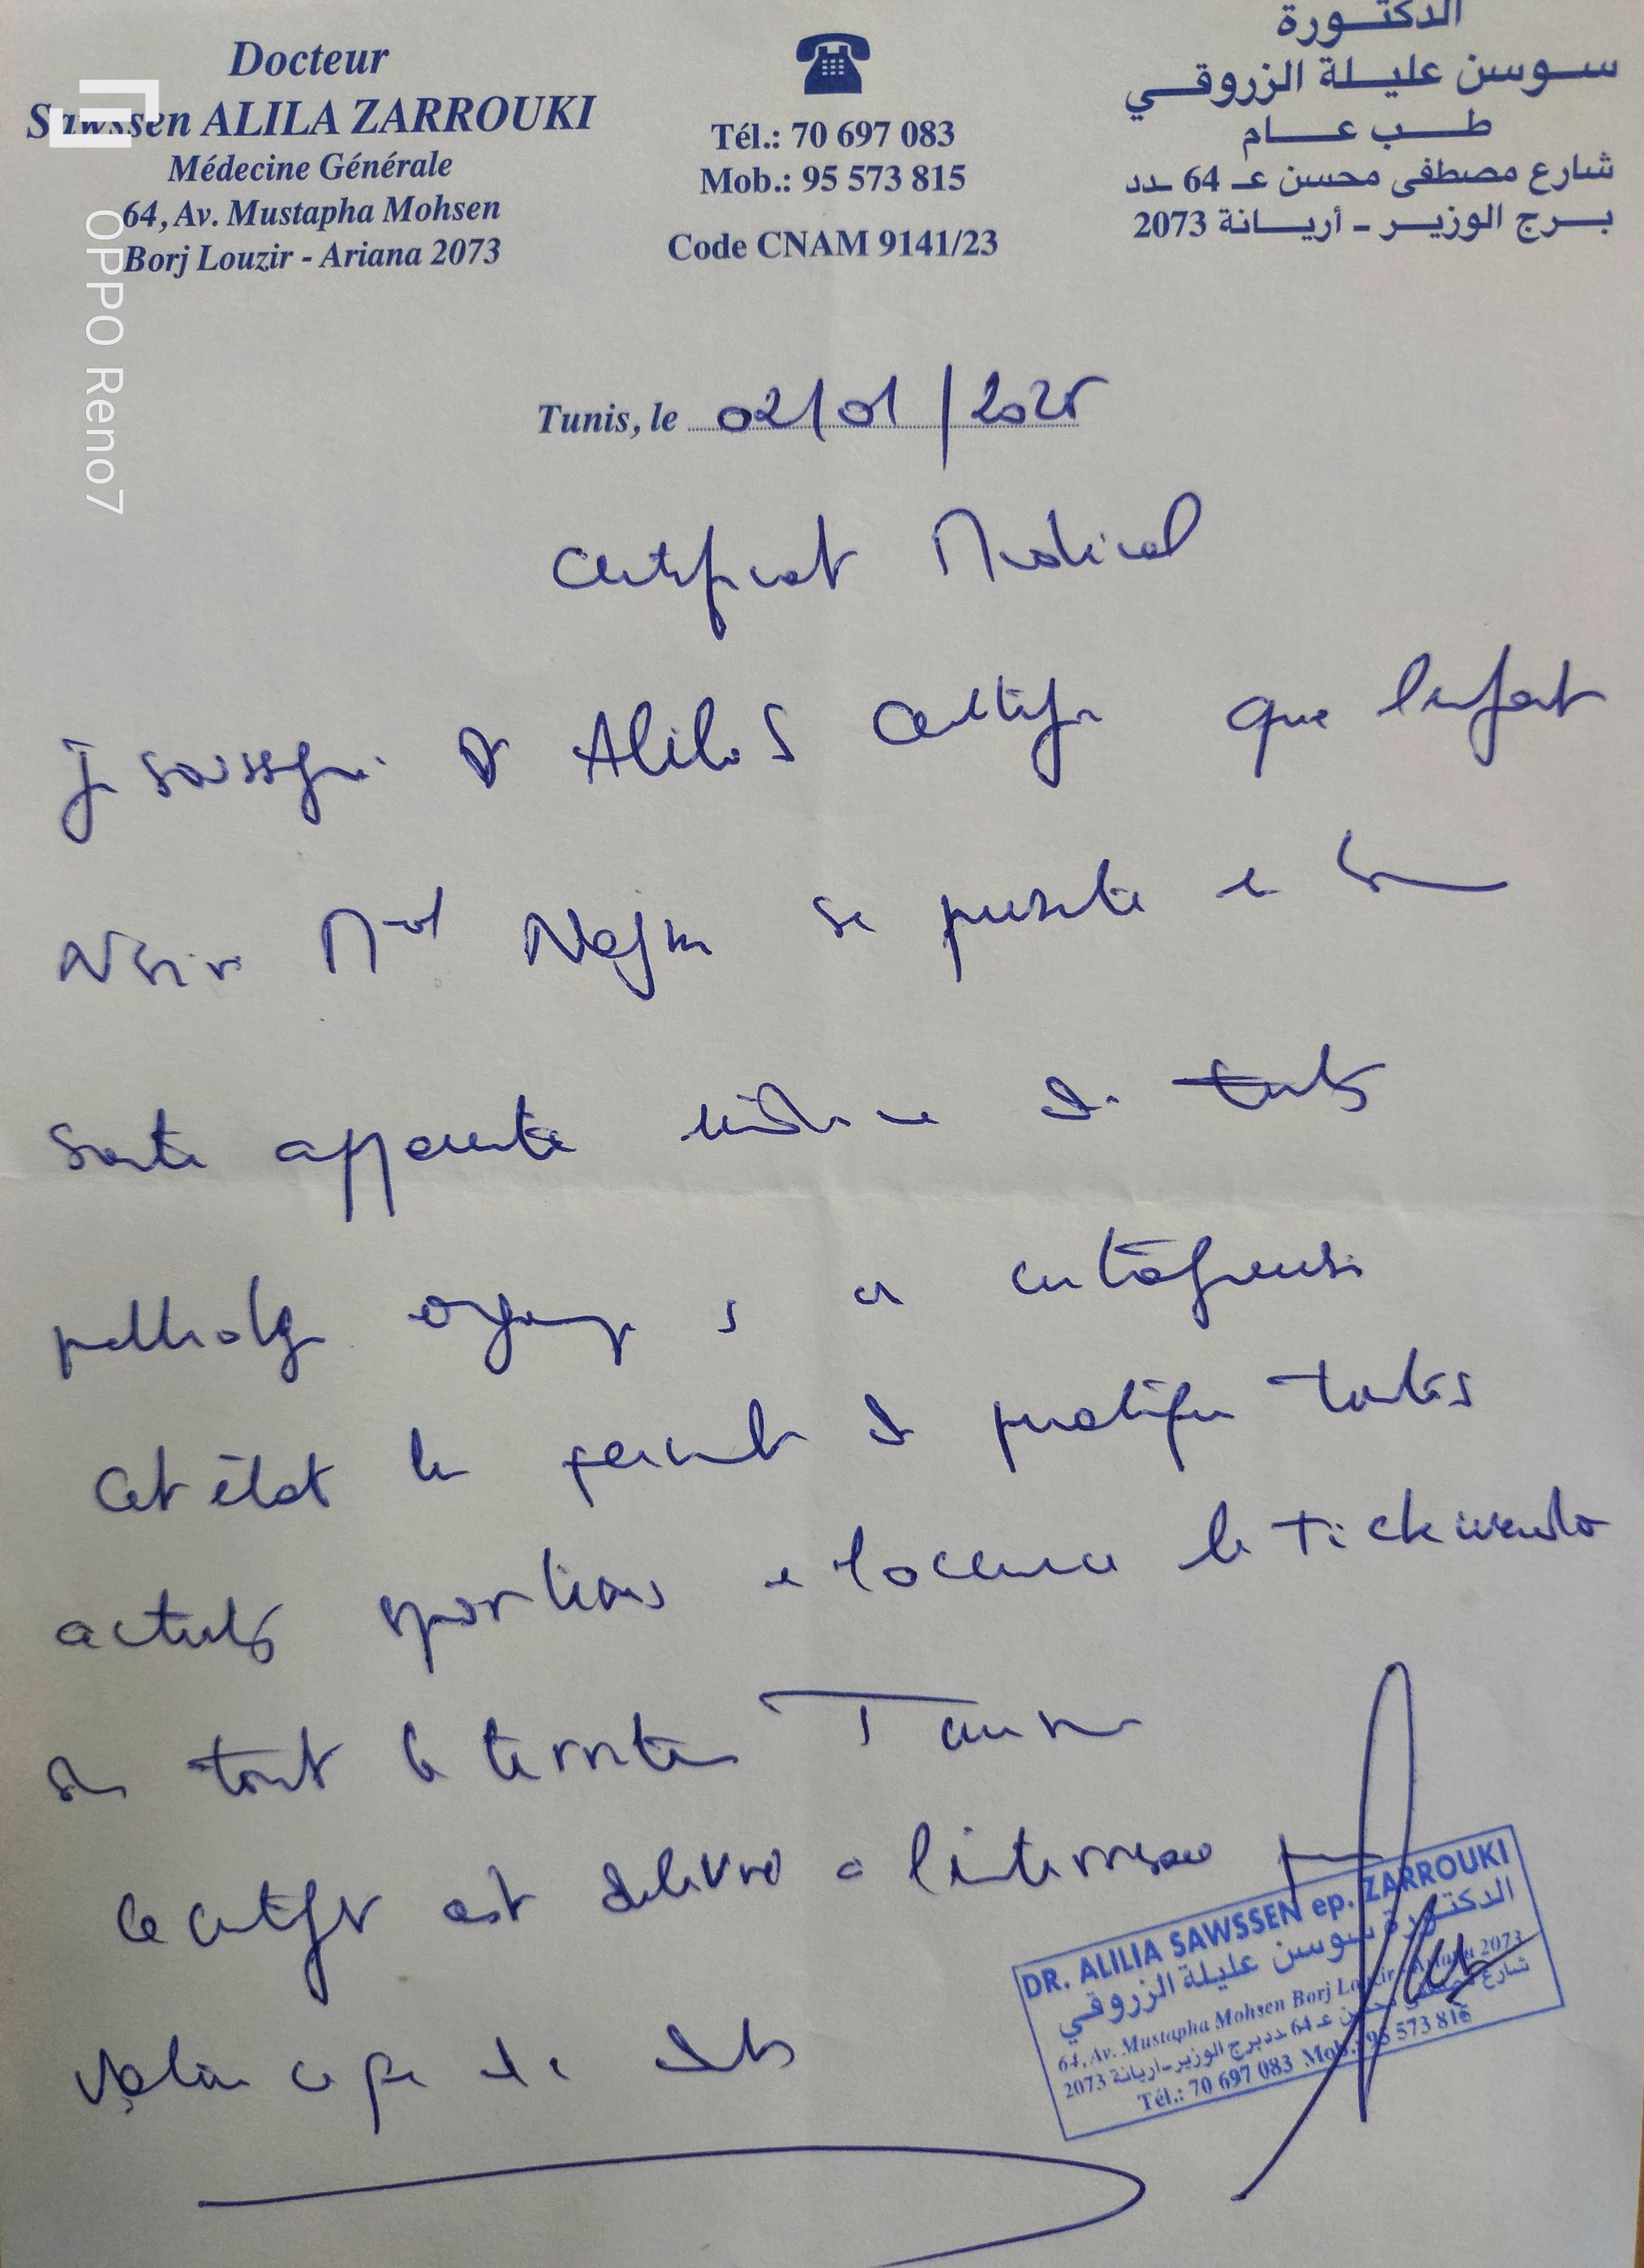 Docteur
Sawssen ALILA ZARROUKI
Médecine Générale
64, Av. Mustapha Mohsen
Borj Louzir - Ariana 2073
Tél.: 70 697 083
Mob.: 95 573 815
Code CNAM 9141/23
الدكتورة
سوسن عليلة الزروقي
طب عام
شارع مصطفى محسن عـ 64 ـدد
برج الوزير - أريانة 2073
OPPO Reno7
Tunis, le 02/01/2025
Certificat Medical
Je soussigné Dr Alila S certifie que l'enfant
Med se présente en bon
santé apparente de toute
pathologie
Cet état lui permet de pratiquer toutes
activités sportives le Tickwendo
tout le territoire
Ce certificat est délivré a l'intéressé pour
Valoir ce que de
DR. ALILIA SAWSSEN ep. ZARROUKI
الدكتورة سوسن عليلة الزروقي
64, Av. Mustapha Mohsen Borj Louzir - Ariana 2073
شارع مصطفى محسن عـ 64 ـدد برج الوزير-أريانة 2073
Tél.: 70 697 083 Mob.: 95 573 815